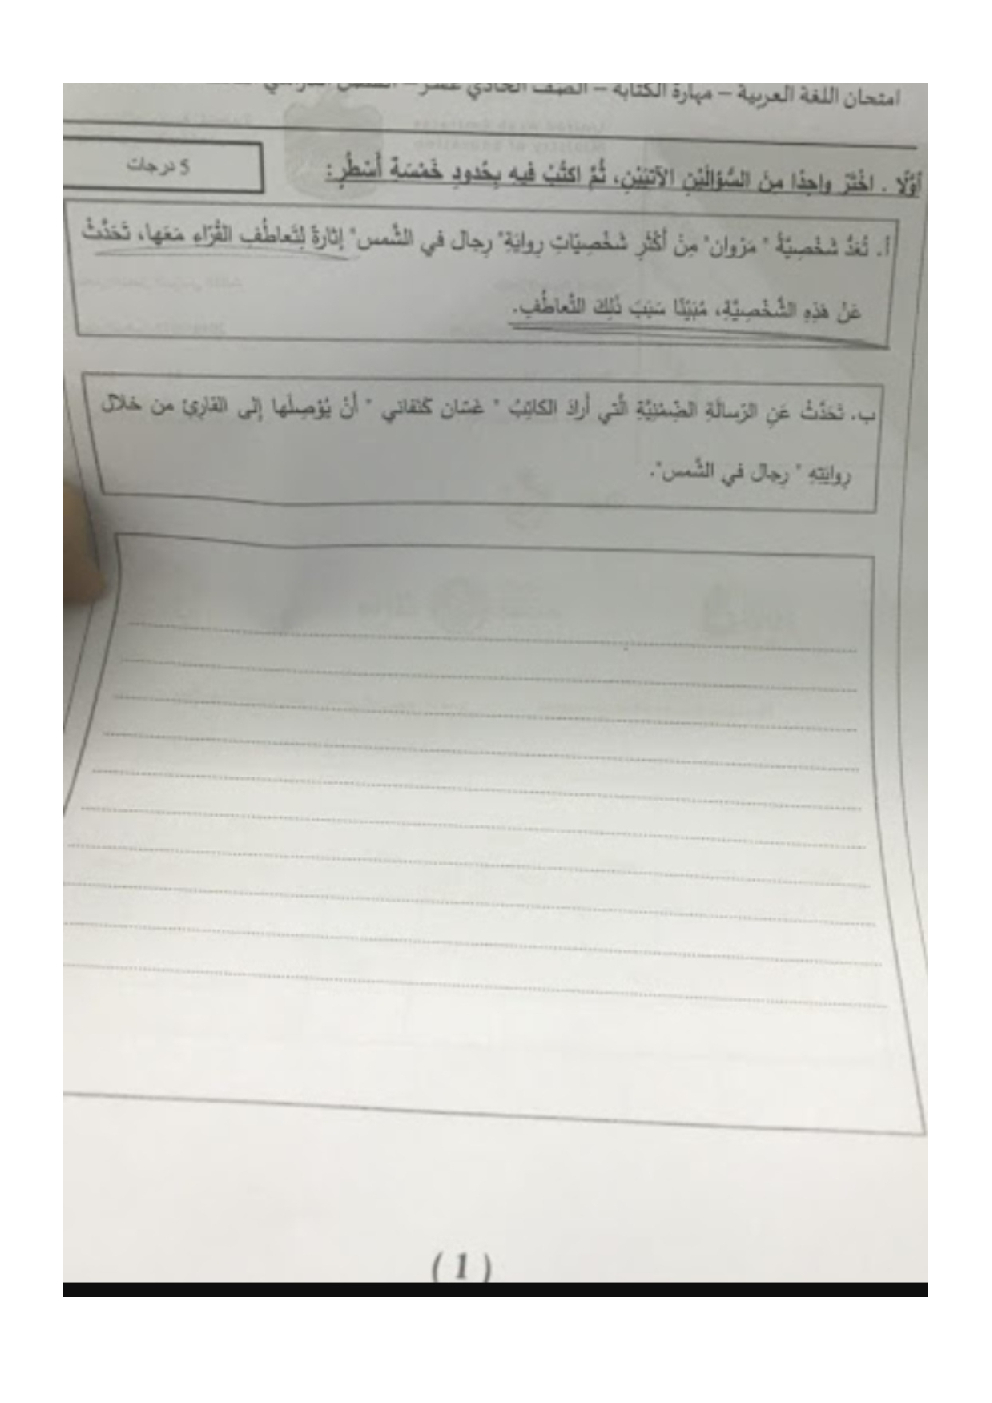 امتحان اللغة العربية – مهارة الكتابة – الصف الحادي عشر –
5 درجات
أوّلًا . اخْتَرْ واحِدًا مِنَ السُّؤالَيْنِ الآتيَيْنِ، ثُمَّ اكتُبْ فيهِ بِحُدودِ خَمْسَةِ أَسْطُرٍ:
أ. تُعَدُّ شَخْصِيَّةُ " مَرْوان" مِنْ أَكْثَرِ شَخْصِيّاتِ رِوايَةِ" رِجال في الشَّمس" إثارةً لِتَعاطُفِ القُرّاءِ مَعَها، تَحَدَّثْ
عَنْ هَذِهِ الشَّخْصِيَّةِ، مُبَيِّنًا سَبَبَ ذَلِكَ التَّعاطُفِ.
ب. تَحَدَّثْ عَنِ الرِّسالَةِ الضِّمْنِيَّةِ الَّتي أَرادَ الكاتِبُ " غَسّان كَنَفاني " أَنْ يُوْصِلَها إلى القارِئِ من خلال
رِوايَتِهِ " رِجال في الشَّمس".
( 1 )